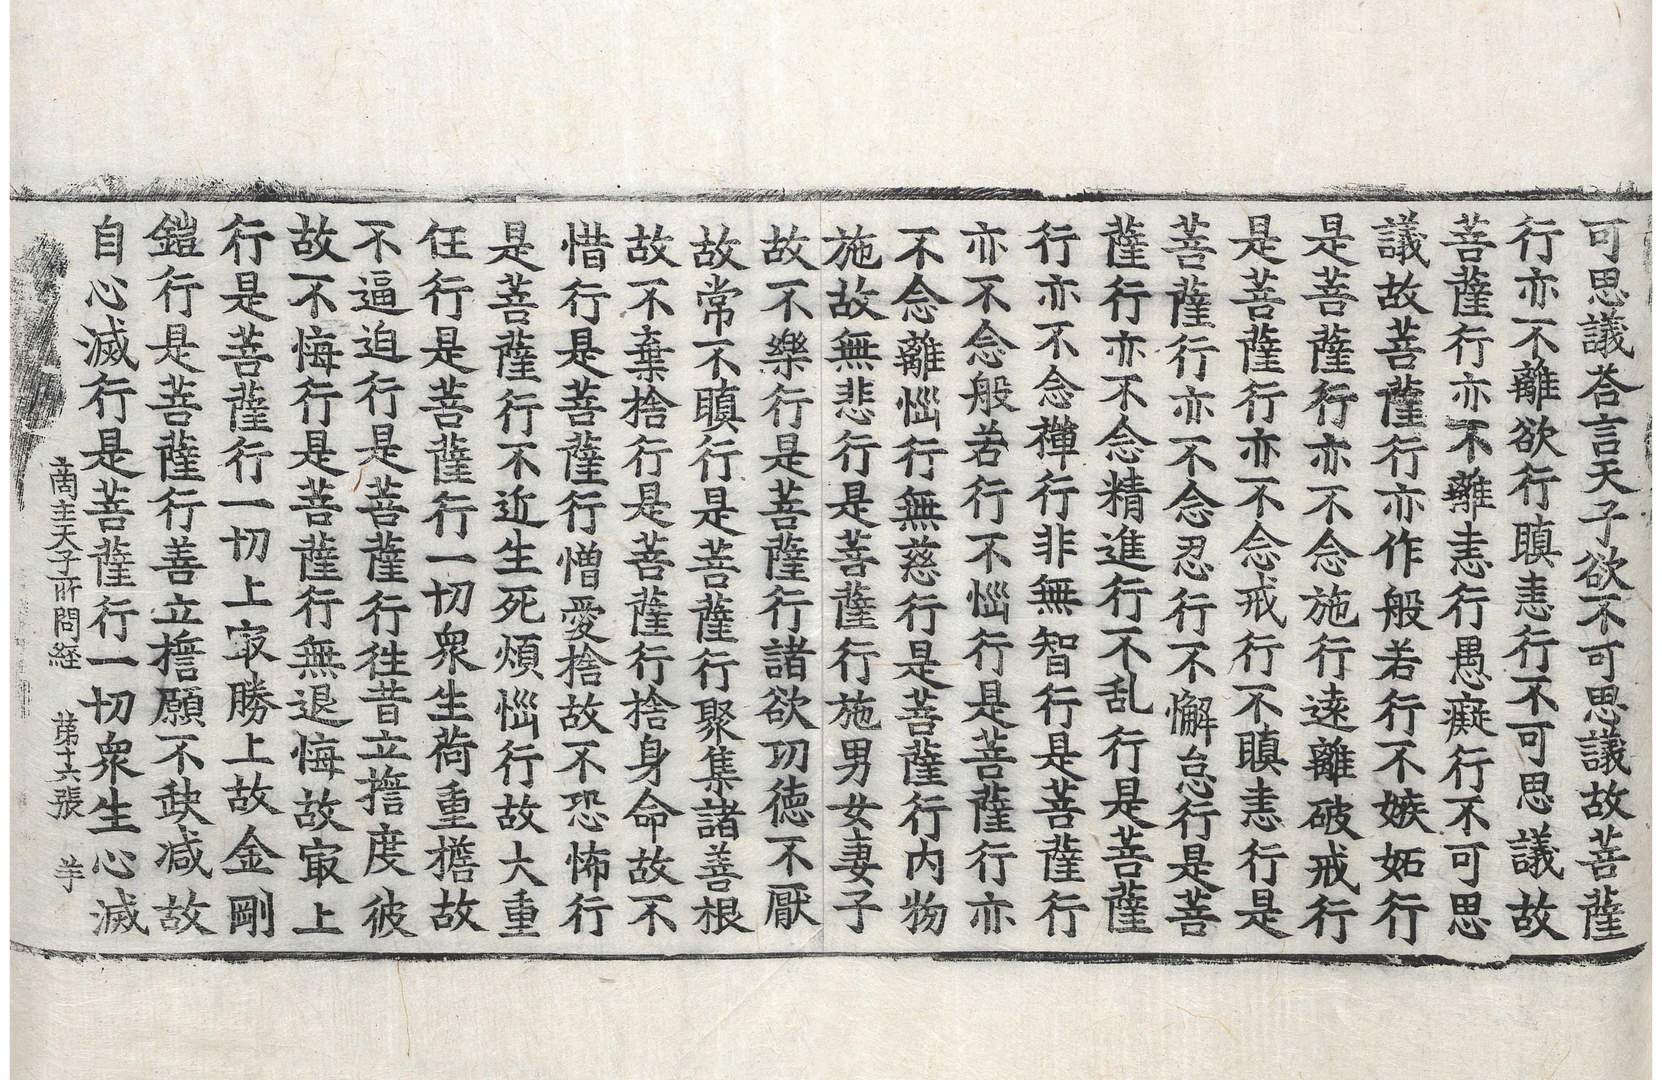 可思議荅言天子欲不可思議故菩薩
行亦不離欲行瞋恚行不可思議故
菩薩行亦不離恚行愚癡行不可思
議故菩薩行亦作般若行不嫉妬行
是菩薩行亦不念施行遠離破戒行
是菩薩行亦不念戒行不瞋恚行是
菩薩行亦不念忍行不懈怠行是菩
薩行亦不念精進行不乱行是菩薩
行亦不念禪行非無智行是菩薩行
亦不念般若行不惱行是菩薩行亦
不念離惱行無慈行是菩薩行内物
施故無悲行是菩薩行施男女妻子
故不樂行是菩薩行諸欲功德不厭
故常不瞋行是菩薩行聚集諸善根
故不棄捨行是菩薩行捨身命故不
惜行是菩薩行憎愛捨故不恐怖行
是菩薩行不近生死煩惱行故大重
任行是菩薩行一切衆生荷重擔故
不逼迫行是菩薩行徃昔立擔度彼
故不悔行是菩薩行無退悔故㝡上
行是菩薩行一切上㝡勝上故金剛
鎧行是菩薩行善立擔願不缺减故
自心滅行是菩薩行一切衆生心滅
商主天子所問経 苐十六張 羊